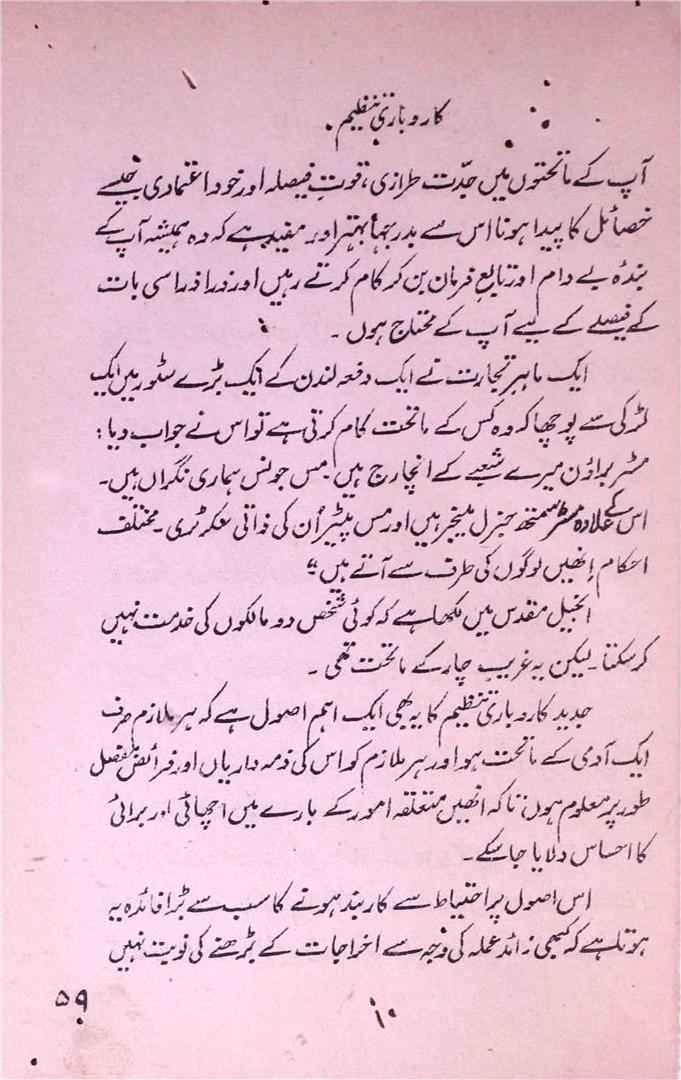 کاروباری تنظیم
آپ کے ماتحتوں میں جدّت طرازی، قوتِ فیصلہ اور خود اعتمادی جیسے
خصائل کا پیدا ہونا اس سے بدرجہا بہتر اور مفید ہے کہ وہ ہمیشہ آپ کے
بندۂ بے دام اور تابعِ فرمان بن کر کام کرتے رہیں اور ذرا ذرا سی بات
کے فیصلے کے لیے آپ کے محتاج ہوں ۔
ایک ماہرِ تجارت نے ایک دفعہ لندن کے ایک بڑے سٹور میں ایک
لڑکی سے پوچھا کہ وہ کس کے ماتحت کام کرتی ہے تو اس نے جواب دیا :
مسٹر براؤن میرے شعبے کے انچارج ہیں۔ مس جونس ہماری نگراں ہیں۔
اس کے علاوہ مسٹر سمتھ جنرل مینجر ہیں اور مس پیٹر اُن کی ذاتی سکرٹری ۔ مختلف
احکام اِنھیں لوگوں کی طرف سے آتے ہیں“
انجیل مقدس میں لکھا ہے کہ کوئی شخص دو مالکوں کی خدمت نہیں
کر سکتا ۔ لیکن یہ غریب چار کے ماتحت تھی ۔
جدید کاروباری تنظیم کا یہ بھی ایک اہم اصول ہے کہ ہر ملازم صرف
ایک آدمی کے ماتحت ہو اور ہر ملازم کو اس کی ذمہ داریاں اور فرائض مفصل
طور پر معلوم ہوں، تاکہ انھیں متعلقہ امور کے بارے میں اچھائی اور برائی
کا احساس دلایا جا سکے۔
اس اصول پر احتیاط سے کاربند ہونے کا سب سے بڑا فائدہ یہ
ہوتا ہے کہ کبھی زائد عملہ کی وجہ سے اخراجات کے بڑھنے کی نوبت نہیں
۵۹
۱۰